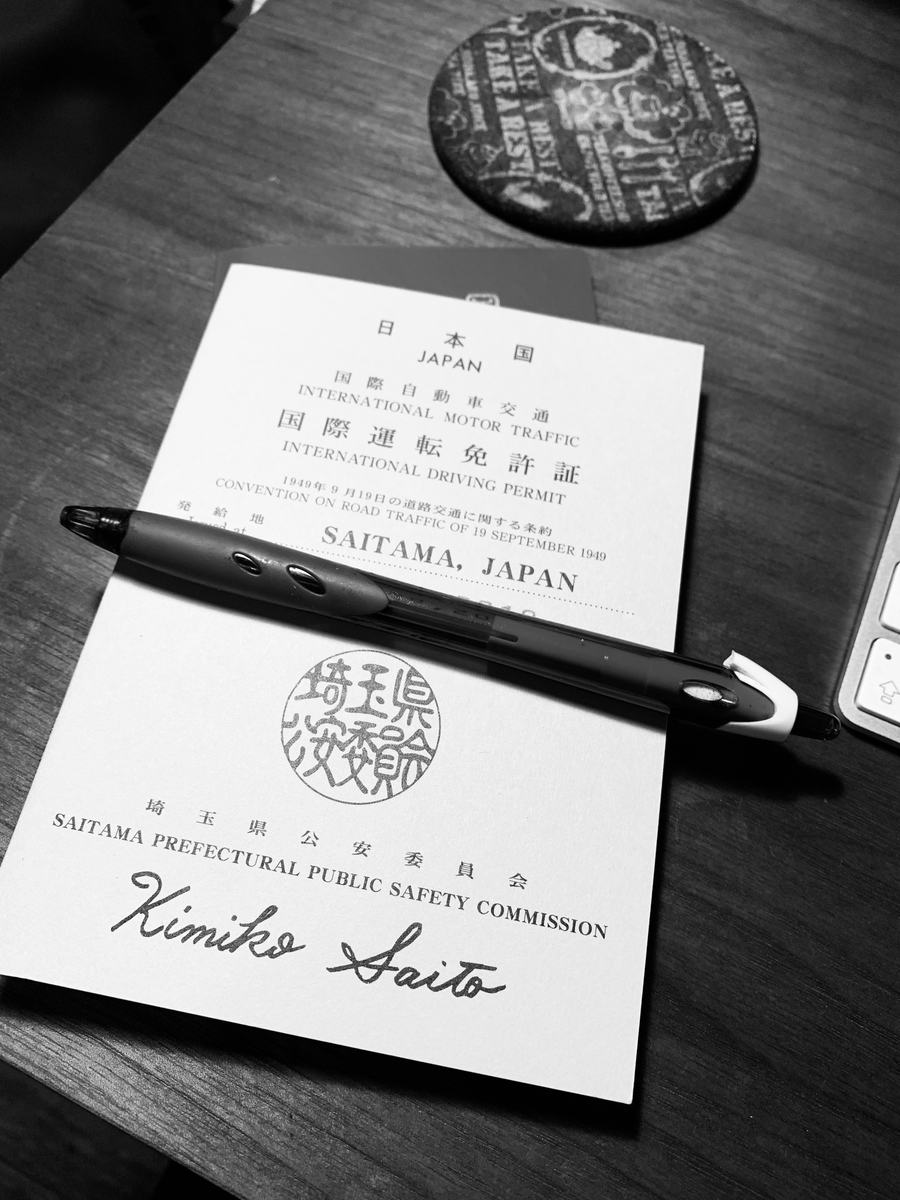 TAKE A REST
TAKE A REST
日本国
JAPAN
国際自動車交通
INTERNATIONAL MOTOR TRAFFIC
国際運転免許証
INTERNATIONAL DRIVING PERMIT
1949年9月19日の道路交通に関する条約
CONVENTION ON ROAD TRAFFIC OF 19 SEPTEMBER 1949
発給地
SAITAMA, JAPAN
埼玉県
公安委員会
埼玉県公安委員会
SAITAMA PREFECTURAL PUBLIC SAFETY COMMISSION
Kimiko Saito